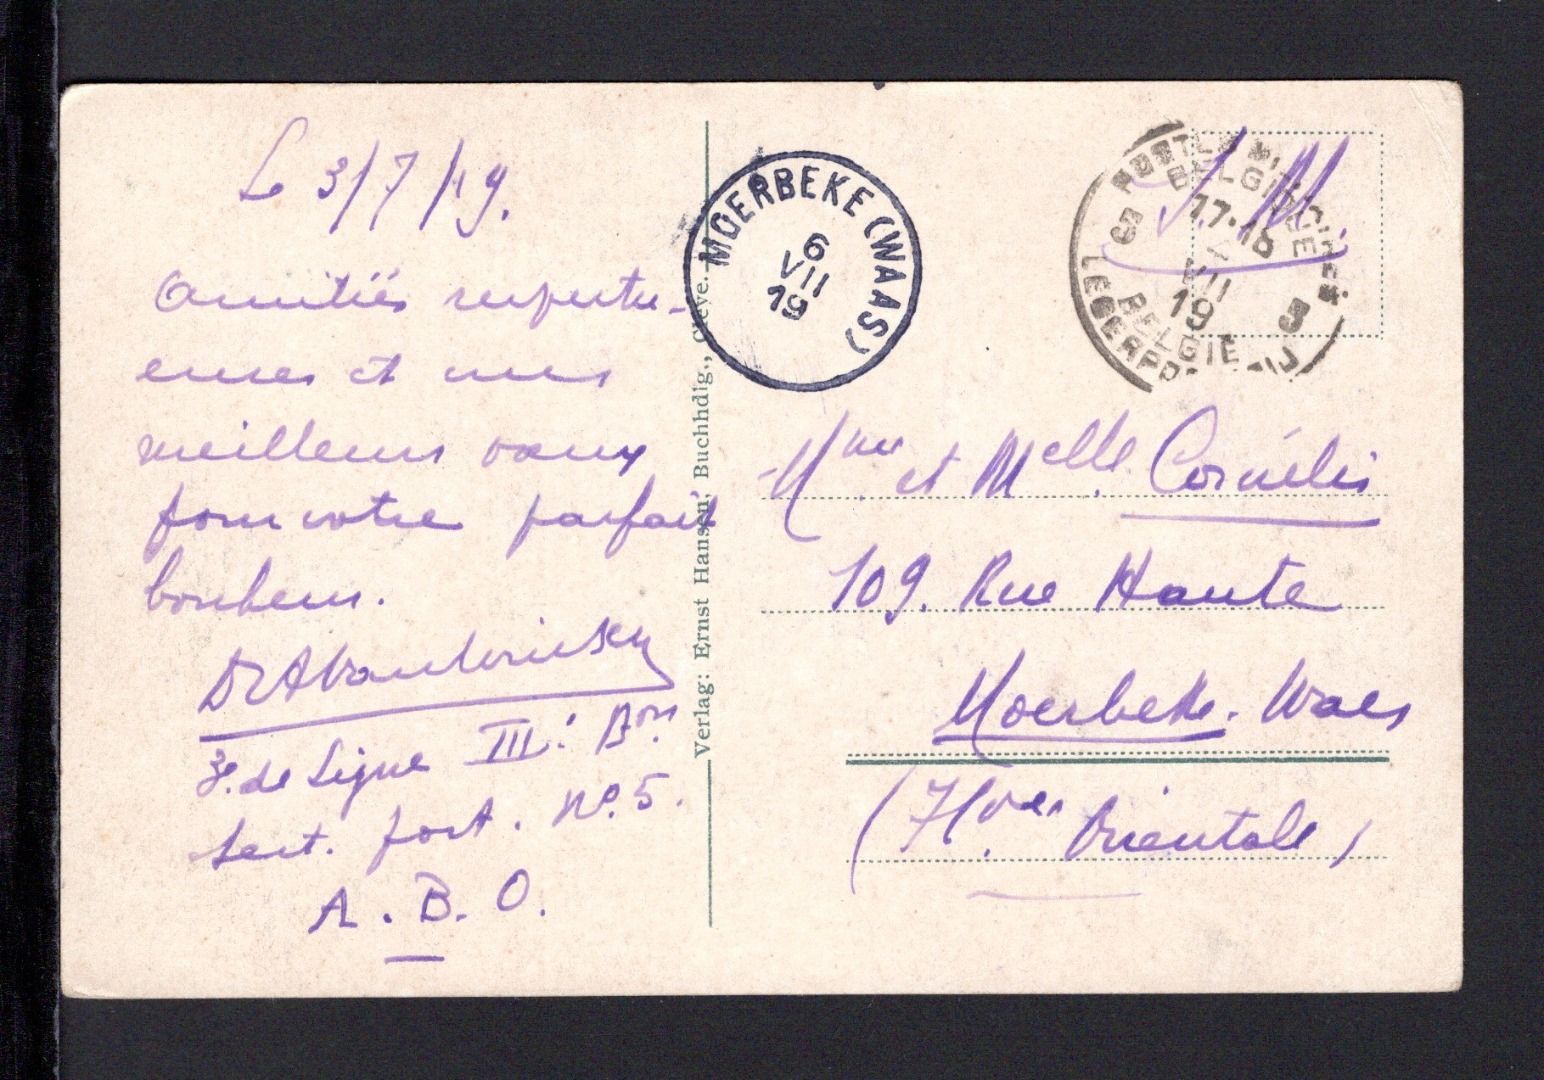 Le 3/7/19.
Amitiés respectu-
euses et mes
meilleurs vœux
pour votre parfait
bonheur.
3e. de Ligne III. Bon
sect. post. No. 5.
A. B. O.
Verlag: Ernst Hansen, Buchhdlg., Cleve.
MOERBEKE (WAAS)
6
VII
19
S. M.
POSTES MILITAIRES
BELGIQUE
5 5
VII
19
BELGIË
LEGERPOSTERIJ
Mme et Melle Cornélis
109. Rue Haute
Moerbeke. Waes
(Flres Orientale)